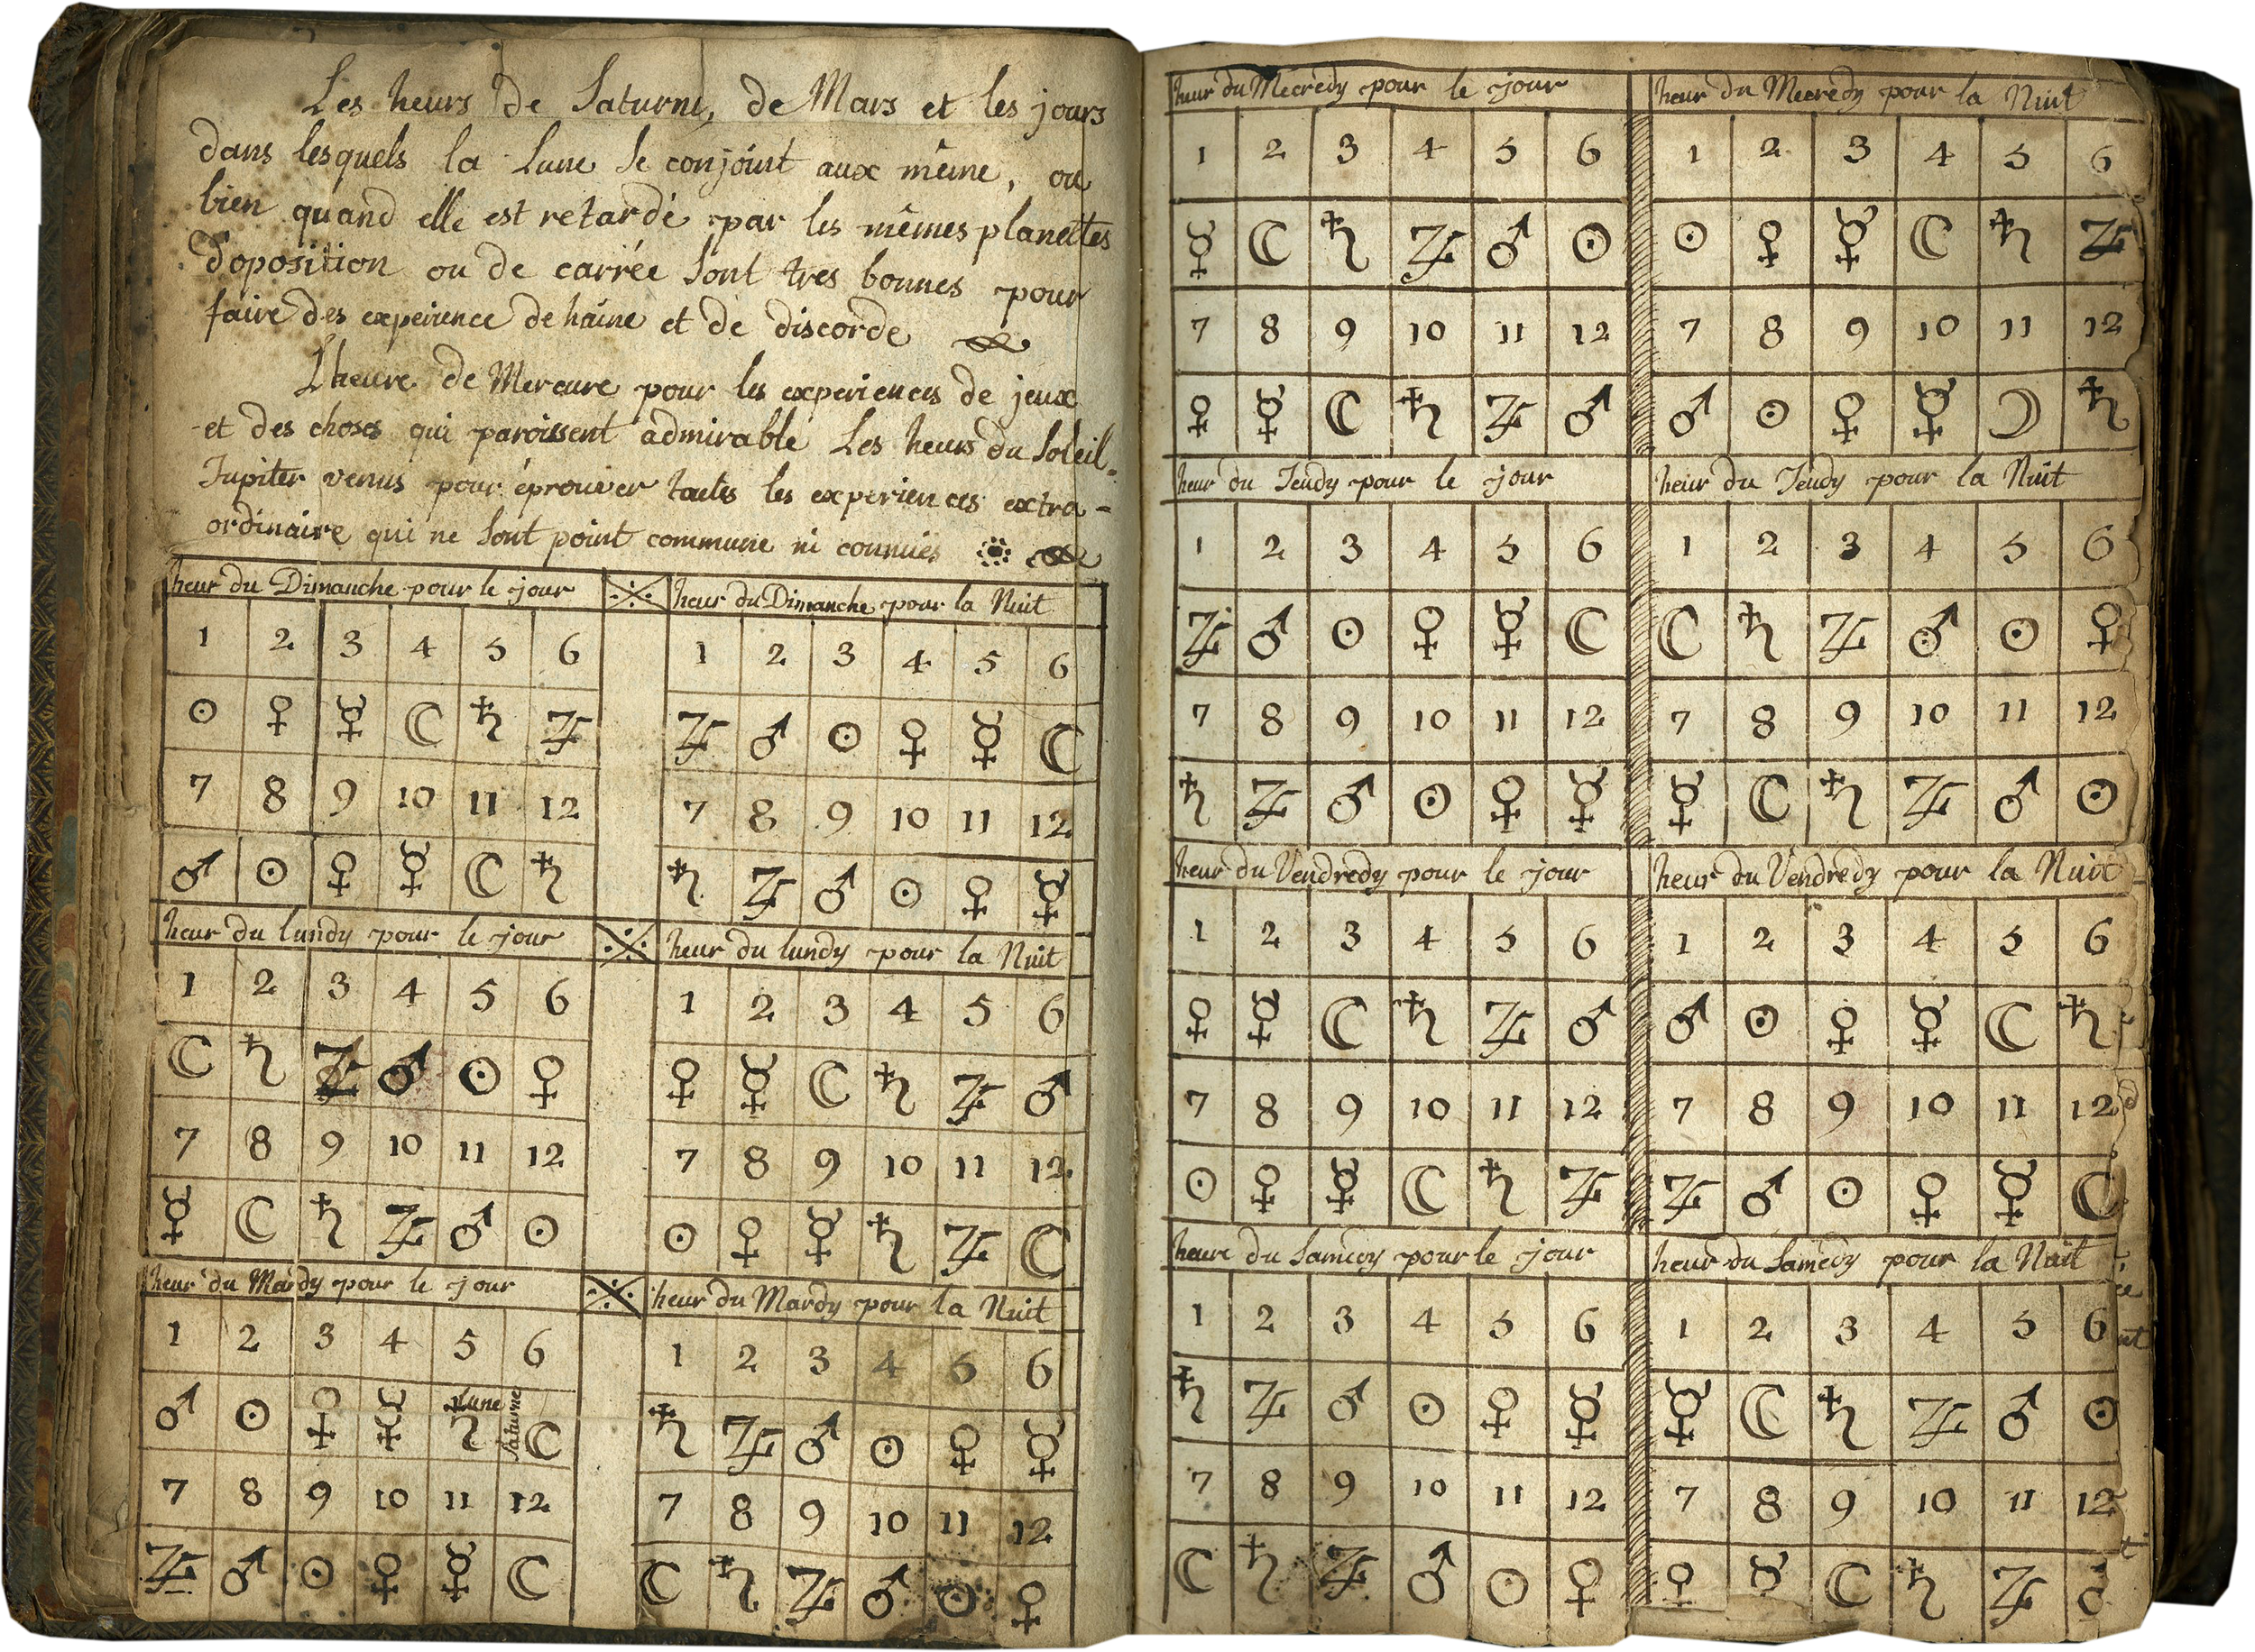 Les heurs de Saturne, de Mars et les jours
dans lesquels la Lune se conjoint aux même, ou
bien quand elle est retardé par les mêmes planettes
d'oposition ou de carrée sont tres bonnes pour
faire des expeirence de haine et de discorde
L'heure de Mercure pour les experiences de jeux
et des choses qui paroissent admirable Les heurs du Soleil
Jupiter venus pour éprouver toutes les experiences extra-
ordinaire qui ne sont point commune ni connuës
heur du Dimanche pour le jour ※ heur du Dimanche pour la Nuit
1 2 3 4 5 6 1 2 3 4 5 6
☉ ♀ ☿ ☾ ♄ ♃ ♃ ♂ ☉ ♀ ☿ ☾
7 8 9 10 11 12 7 8 9 10 11 12
♂ ☉ ♀ ☿ ☾ ♄ ♄ ♃ ♂ ☉ ♀ ☿
heur du lundy pour le jour ※ heur du lundy pour la Nuit
1 2 3 4 5 6 1 2 3 4 5 6
☾ ♄ ♃ ♂ ☉ ♀ ♀ ☿ ☾ ♄ ♃ ♂
7 8 9 10 11 12 7 8 9 10 11 12
☿ ☾ ♄ ♃ ♂ ☉ ☉ ♀ ☿ ♄ ♃ ☾
heur du Mardy pour le jour ※ heur du Mardy pour la Nuit
1 2 3 4 5 6 1 2 3 4 5 6
Lune Saturne
♂ ☉ ♀ ☿ ♄ ☾ ♄ ♃ ♂ ☉ ♀ ☿
7 8 9 10 11 12 7 8 9 10 11 12
♃ ♂ ☉ ♀ ☿ ☾ ☾ ♄ ♃ ♂ ☉ ♀
heur du Mecredy pour le jour heur du Mecredy pour la Nuit
1 2 3 4 5 6 1 2 3 4 5 6
☿ ☾ ♄ ♃ ♂ ☉ ☉ ♀ ☿ ☾ ♄ ♃
7 8 9 10 11 12 7 8 9 10 11 12
♀ ☿ ☾ ♄ ♃ ♂ ♂ ☉ ♀ ☿ ☽ ♄
heur du Jeudy pour le jour heur du Jeudy pour la Nuit
1 2 3 4 5 6 1 2 3 4 5 6
♃ ♂ ☉ ♀ ☿ ☾ ☾ ♄ ♃ ♂ ☉ ♀
7 8 9 10 11 12 7 8 9 10 11 12
♄ ♃ ♂ ☉ ♀ ☿ ☿ ☾ ♄ ♃ ♂ ☉
heur du Vendredy pour le jour heur du Vendredy pour la Nuit
1 2 3 4 5 6 1 2 3 4 5 6
♀ ☿ ☾ ♄ ♃ ♂ ♂ ☉ ♀ ☿ ☾ ♄
7 8 9 10 11 12 7 8 9 10 11 12
☉ ♀ ☿ ☾ ♄ ♃ ♃ ♂ ☉ ♀ ☿ ☾
heure du Samedy pour le jour heur du Samedy pour la Nuit
1 2 3 4 5 6 1 2 3 4 5 6
♄ ♃ ♂ ☉ ♀ ☿ ☿ ☾ ♄ ♃ ♂ ☉
7 8 9 10 11 12 7 8 9 10 11 12
☾ ♄ ♃ ♂ ☉ ♀ ♀ ☿ ☾ ♄ ♃ ♂